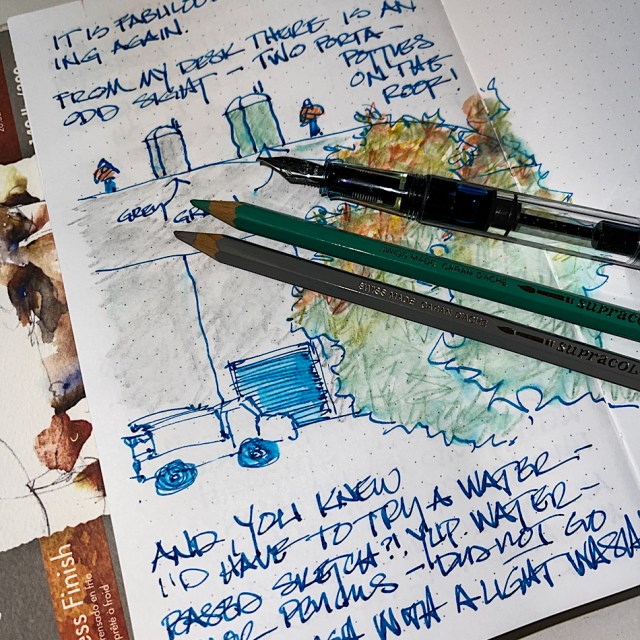 IT IS FABULOU
ING AGAIN.
FROM MY DESK THERE IS AN
ODD SIGHT - TWO PORTA-
POTTIES
ON THE
ROOF!
GREY
SWISS MADE CARAN D'ACHE
supraco
SWISS MADE CARAN D'ACHE
supracol
AND, YOU KNEW
I'D HAVE TO TRY A WATER-
BASED SKETCH?! YUP WATER-
PENCILS - DID NOT GO
WITH A LIGHT WASH
ss Finish